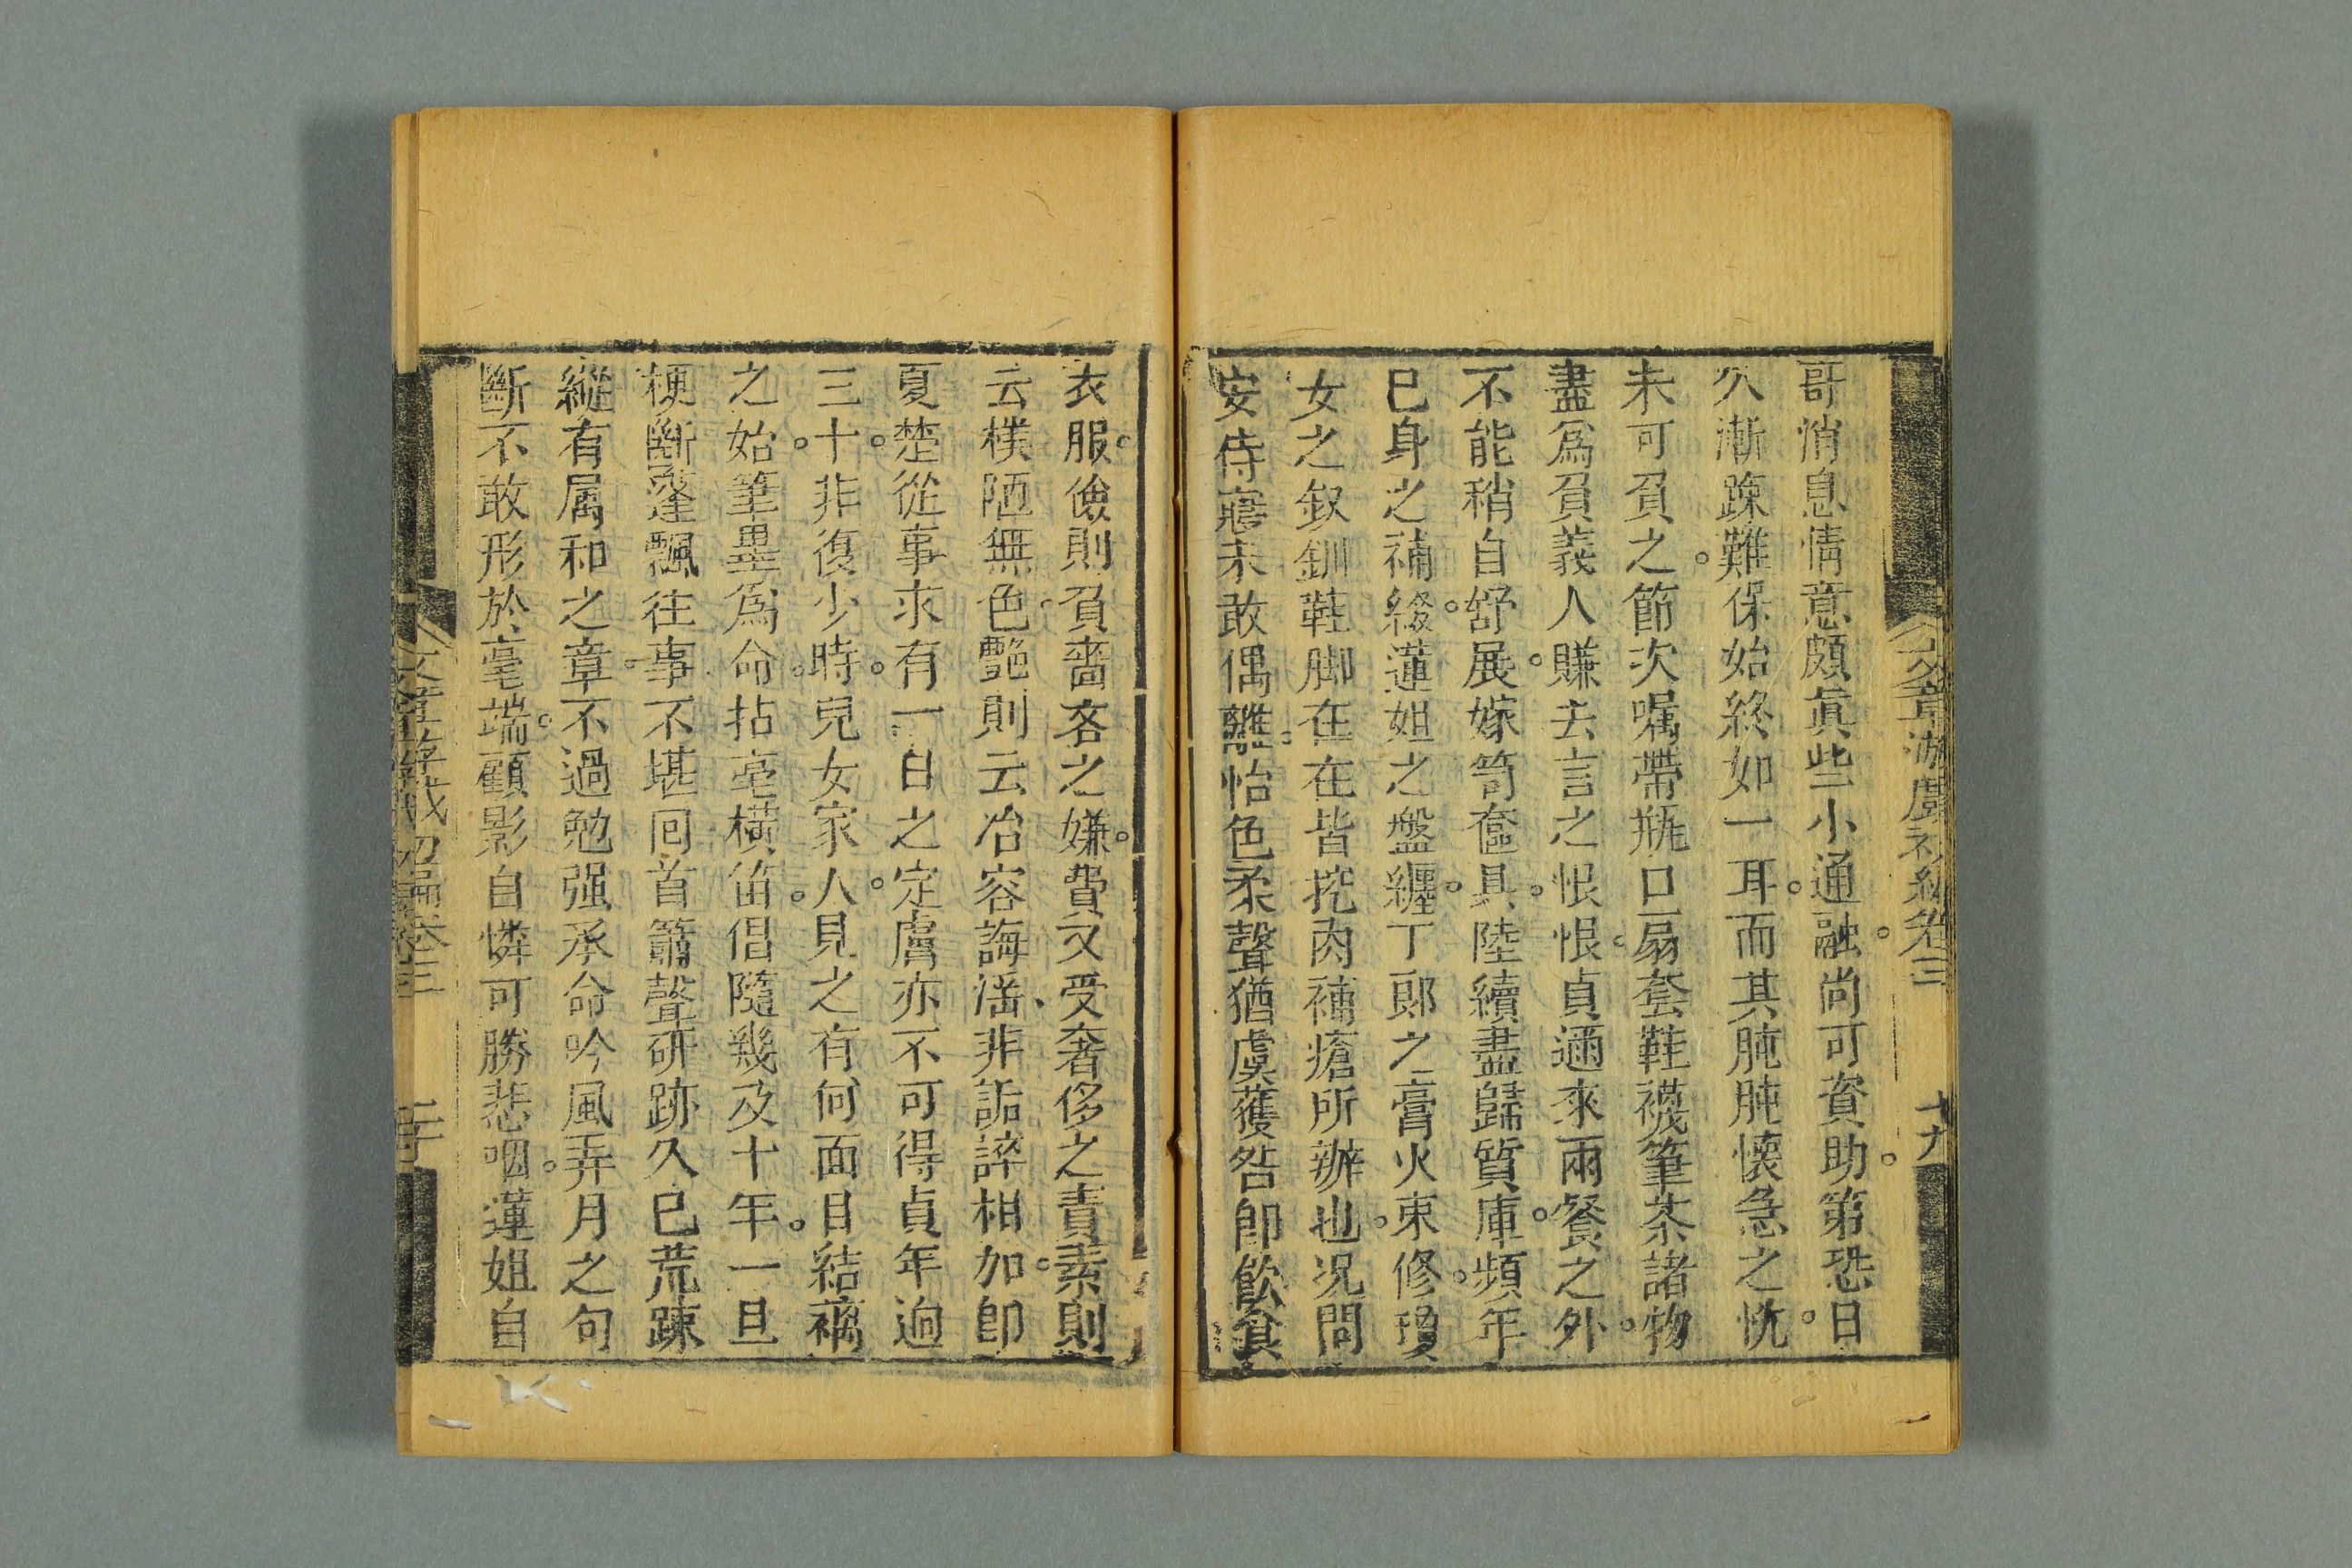 文章游戲初編卷三 十九
哥消息情意頗眞些小通融。尚可資助。第恐日
久漸踈難保始終如一耳。而其肫肫懷急之忱。
未可負之。節次嘱帶瓶口扇套鞋襪筆茶諸物。
盡爲負義人賺去言之恨恨。貞邇來兩餐之外
不能稍自舒展。嫁笥奩具。陸續盡歸質庫。頻年
已身之補綴。蓮姐之盤纏。丁郞之膏火束修。瓊
女之釵釧鞋脚在在皆挖肉補瘡所辦也。况問
安侍寢未敢偶離。怡色柔聲猶虞獲咎卽飮食
衣服。儉則負嗇吝之嫌。費又受奢侈之責素則
云樸陋無色。艷則云冶容誨滛、非詬誶相加。卽
夏楚從事求有一日之定膚亦不可得貞年逾
三十。非復少時。兒女家人。見之有何面目結褵
之。始筆墨爲命。拈毫橫笛。倡隨幾及十年。一旦
梗斷蓬飄往事不堪回首簫聲硏跡久已荒踈
縱有属和之章。不過勉强承命吟風弄月之句
斷不敢形於毫端。顧影自憐可勝悲咽。蓮姐自
文章游戲初編卷三 二十